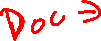 Doc →